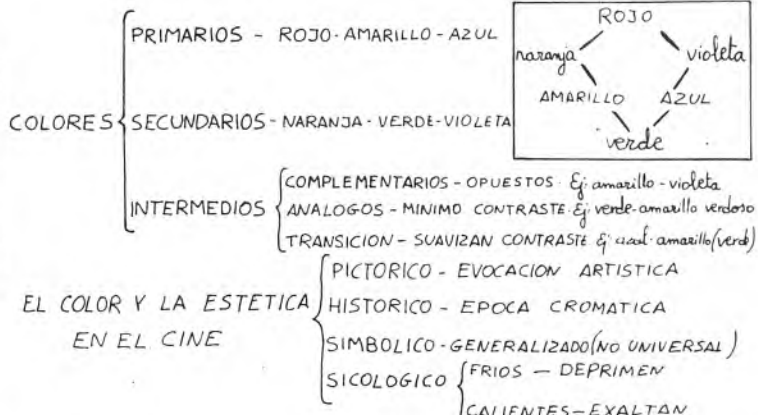 PRIMARIOS - ROJO - AMARILLO - AZUL
COLORES
SECUNDARIOS - NARANJA - VERDE - VIOLETA
INTERMEDIOS
COMPLEMENTARIOS - OPUESTOS. Ej: amarillo - violeta
ANALOGOS - MINIMO CONTRASTE. Ej: verde-amarillo verdoso
TRANSICION - SUAVIZAN CONTRASTE Ej: azul-amarillo (verde)
ROJO
naranja violeta
AMARILLO AZUL
verde
EL COLOR Y LA ESTETICA
EN EL CINE
PICTORICO - EVOCACION ARTISTICA
HISTORICO - EPOCA CROMATICA
SIMBOLICO - GENERALIZADO (NO UNIVERSAL)
SICOLOGICO
FRIOS - DEPRIMEN
CALIENTES - EXALTAN